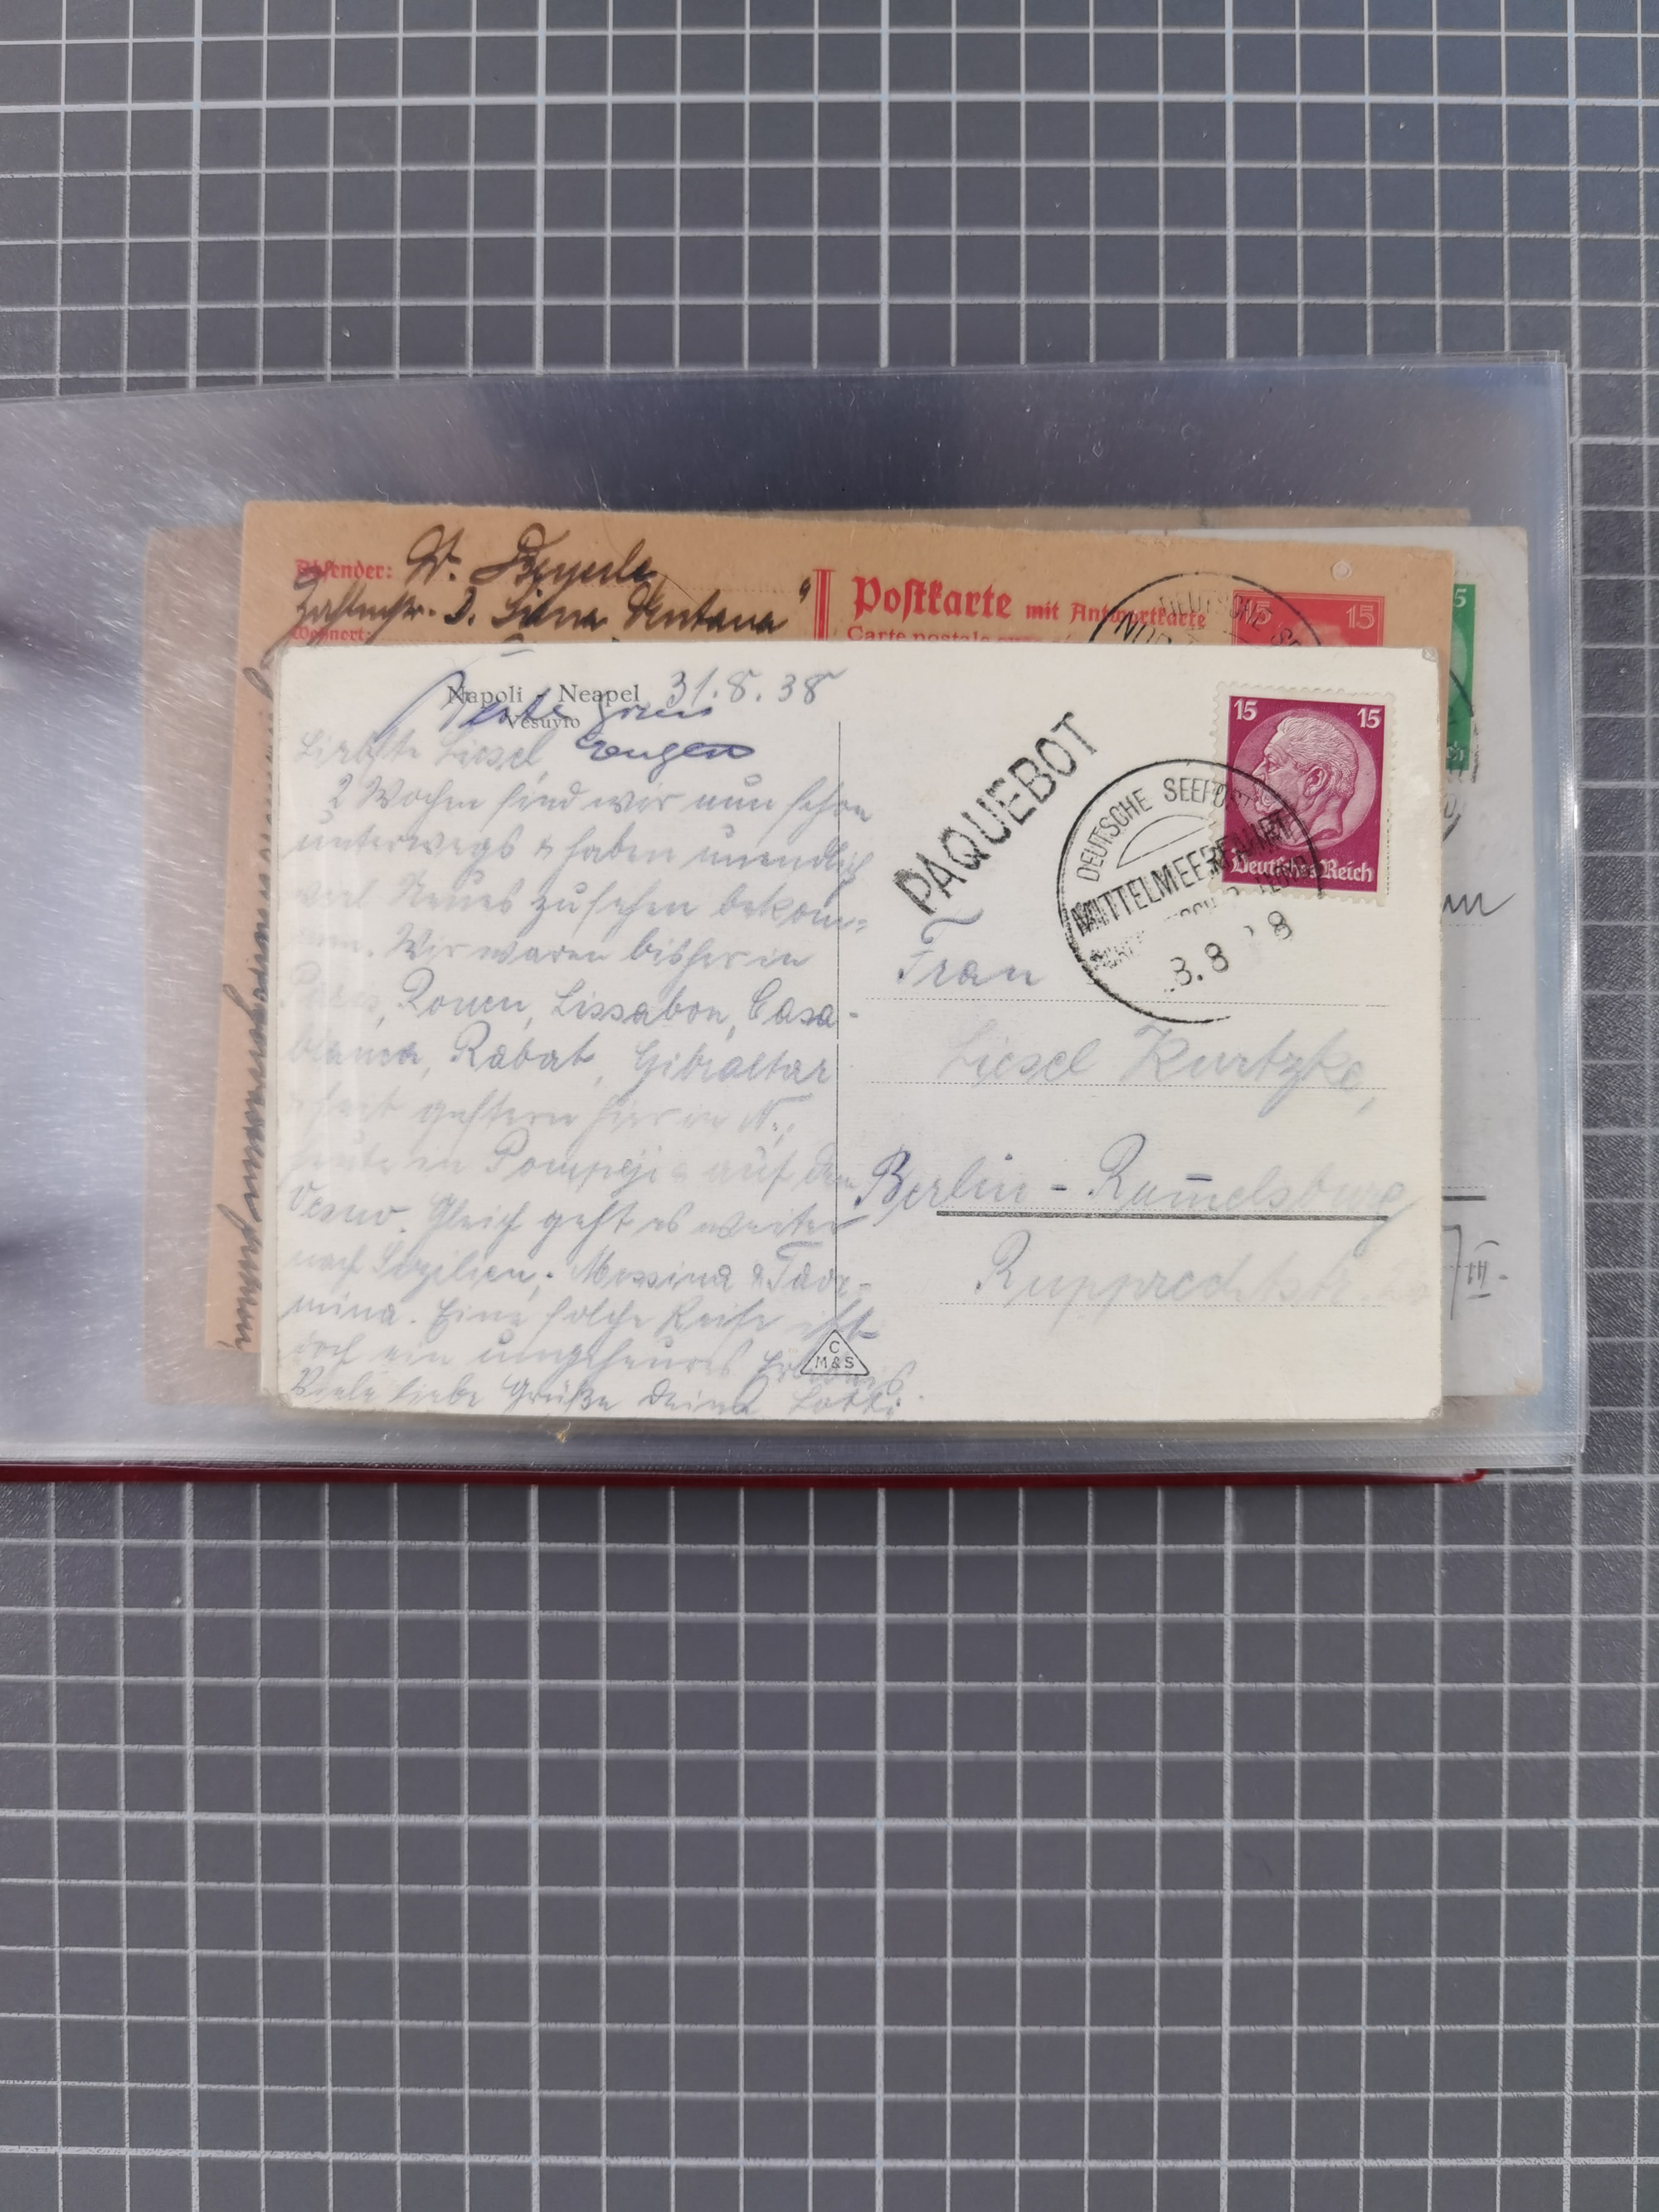 Absender: W. Beyerle
Postkarte mit Antwortkarte
Carte postale
15 15
DEUTSCHE
5
Napoli - Neapel 31.8.38
Vesuvio
Eugen
Liebste Liesel,
2 Wochen sind wir nun schon
unterwegs & haben unendlich
viel Neues zu sehen bekom-
men. Wir waren bisher in
Paris, Rouen, Lissabon, Casa-
blanca, Rabat, Gibraltar
& seit gestern hier in N.,
heute in Pompeji & auf dem
Vesuv. Gleich geht es weiter
nach Sizilien, Messina & Taor-
mina. Eine solche Reise ist
doch ein ungeheures Erlebnis.
Viele liebe Grüße Deine Lotte.
PAQUEBOT
DEUTSCHE SEEPOST
MITTELMEERFAHRT
8.8
8
15 15
Deutsches Reich
Frau
Liesel Kurtzke,
Berlin - Rum̄elsburg
Rupprechtstr.
C
M&S
III.